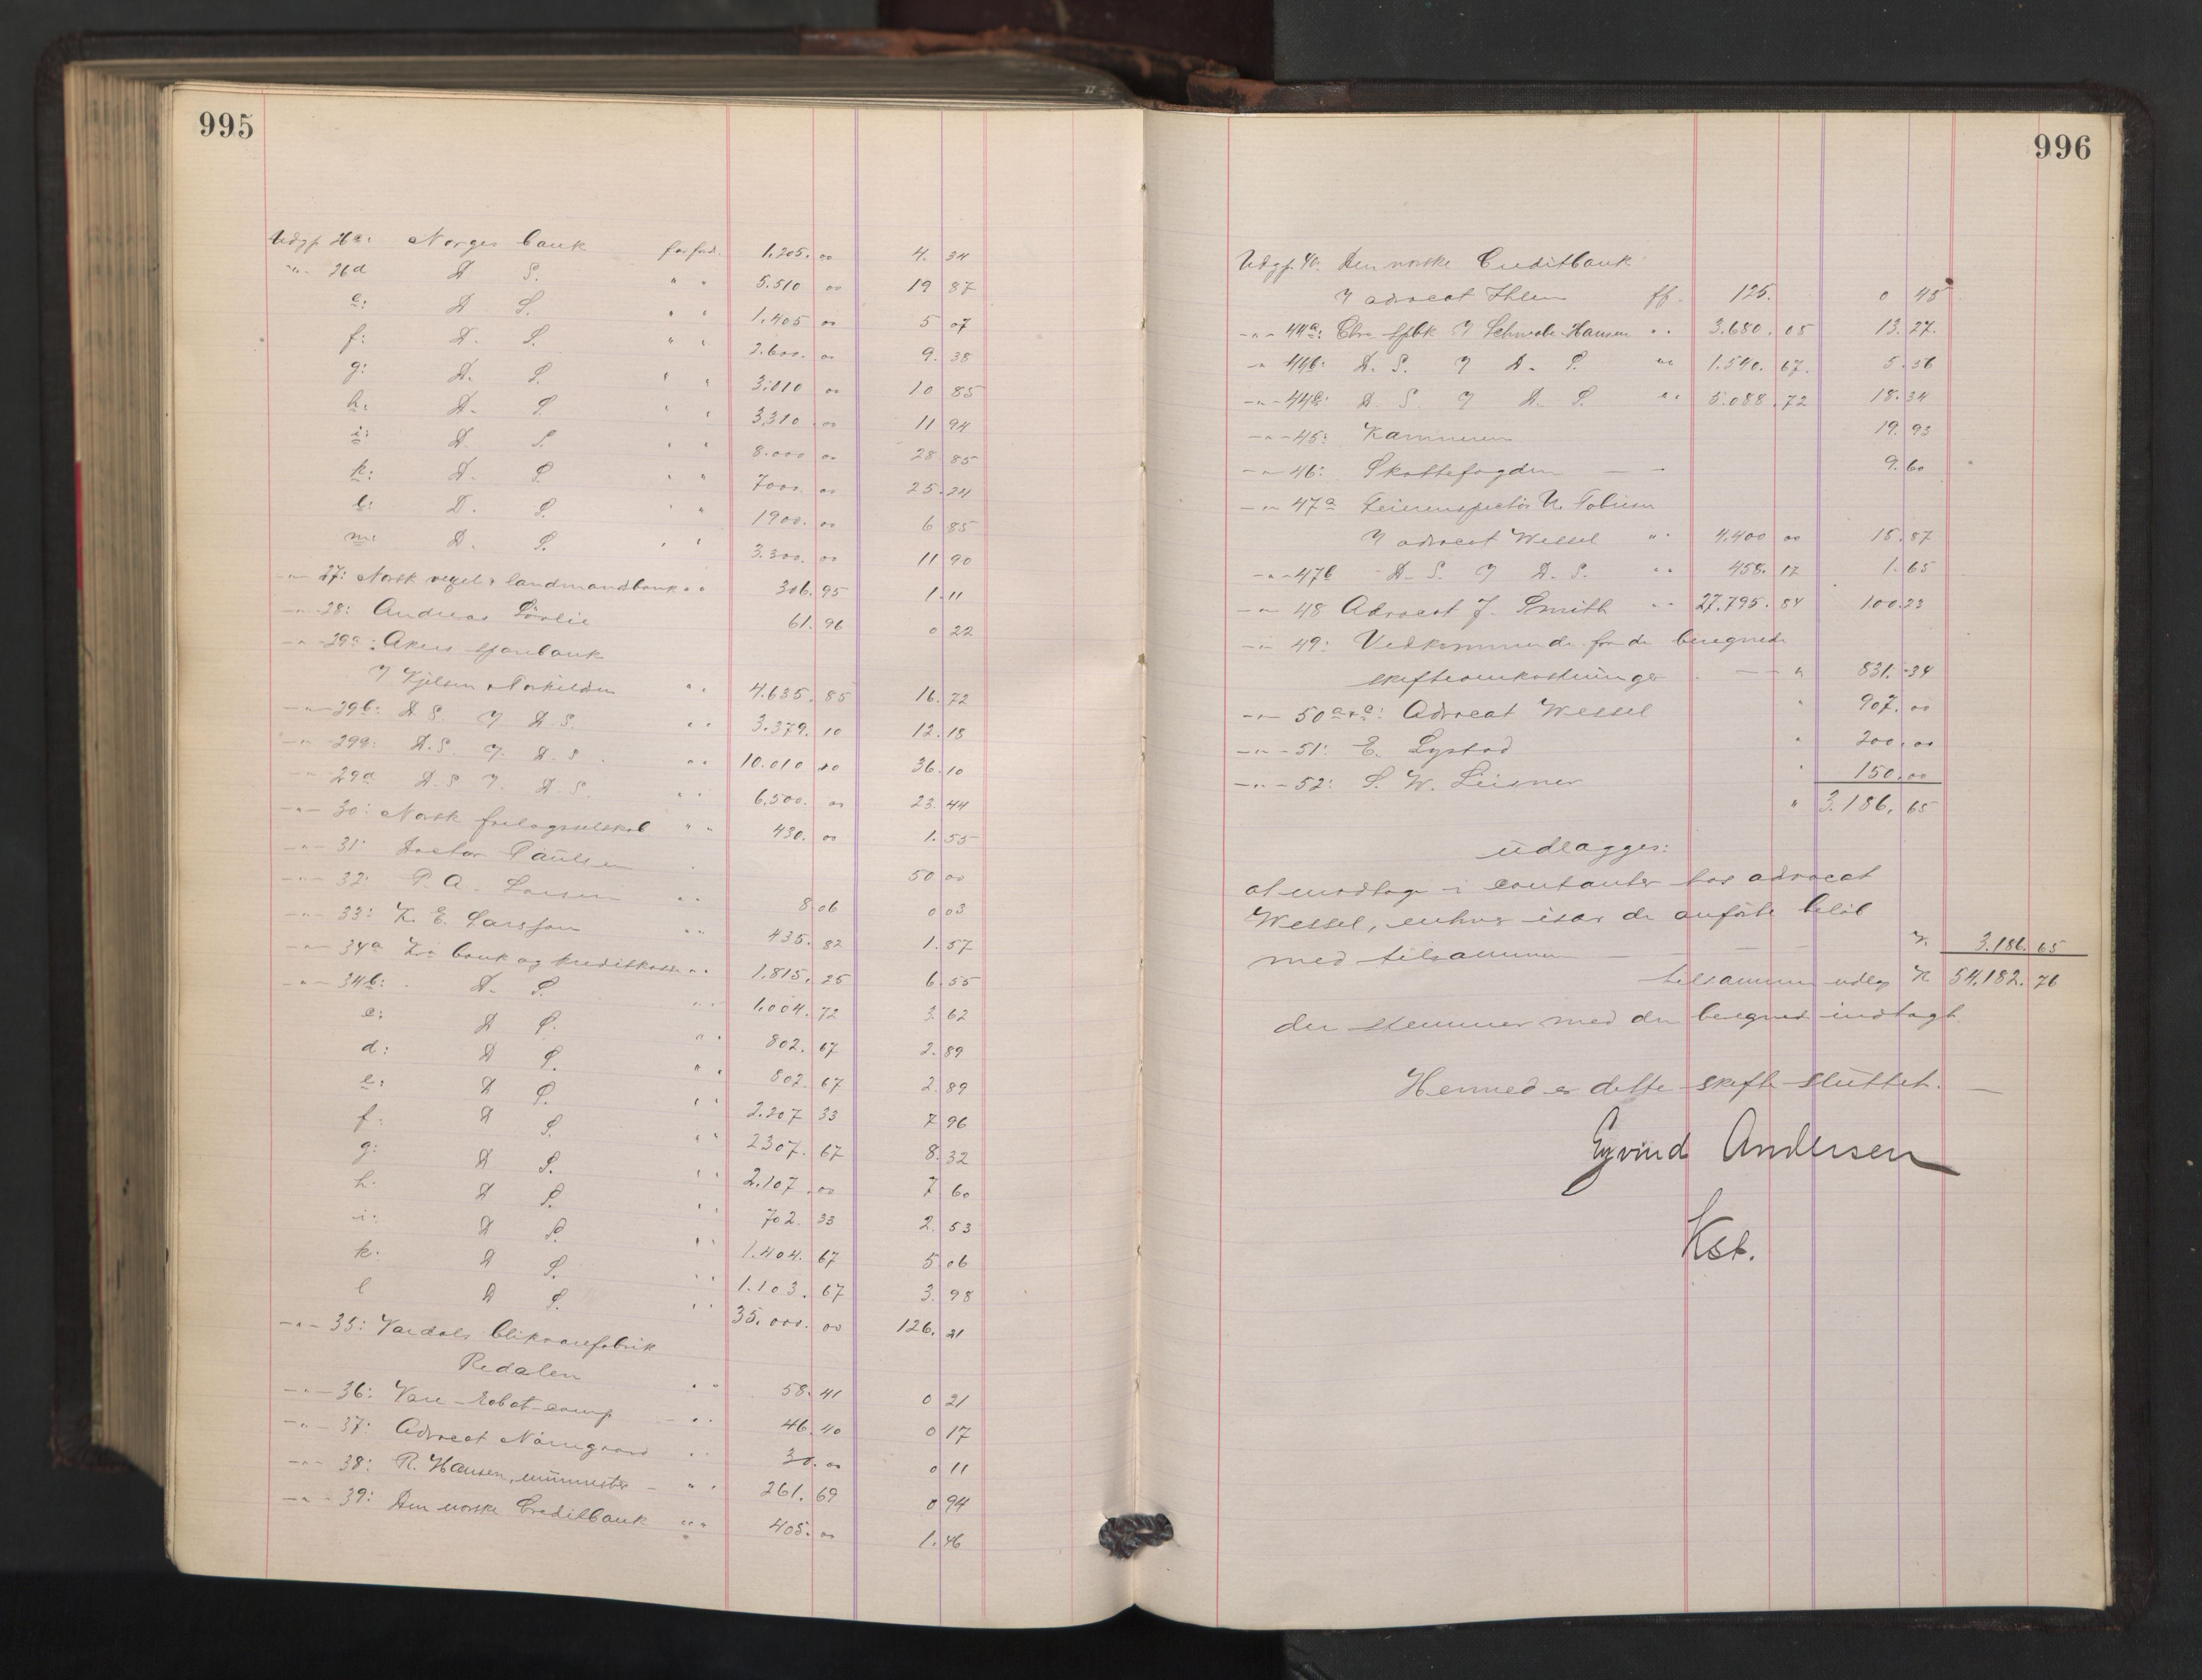 995
Udgf. 26c: Norges bank for ford. 1.205. 00 4. 34
-"- 26d D S. " " 5.510 00 19 87
e: D S. " " 1.405 00 5 07
f: D. S. " " 2.600. 00 9. 38
g: D. S. " " 3.010 00 10 85
h: D- S. " " 3.310. 00 11 94
i: D. S. " " 8.000 00 28 85
k: D- S. " " 7000. 00 25. 24
l: D. S. " " 1900. 00 6 85
m: D. S. " " 3.300. 00 11 90
-"- 27: Norsk vexel & landmandsbank " " 306. 95 1. 11
-"- 28: Andreas Sørlie 61. 96 0 22
-"- 29a: Akers sparebank
v/ Kjelsen & Torkildsen " " 4.635. 85 16. 72
-"- 29b: D.S. v/ D.S. " " 3.379. 10 12. 18
-"- 29c: D.S. v/ D.S. " " 10.010 00 36. 10
-"- 29d D.S v/ D.S. " " 6.500. 00 23. 44
-"- 30: Norsk forlagsselskab " " 430. 00 1. 55
-"- 31: Doctor Paulsen 50 00
-"- 32: P. A. Larsen " " 8 06 0 03
-"- 33: K. E. Larsson " " 435. 82 1. 57
-"- 34a Kra bank og kreditkasse " " 1.815. 25 6. 55
-"- 34b: D. S. " " 1.004. 72 3. 62
c: D S. " " 802. 67 2. 89
d: D S. " " 802. 67 2. 89
e: D S. " " 2.207 33 7 96
f: D S. " " 2307. 67 8. 32
g: D S. " " 2.107. 00 7 60
h. D S. " " 702. 33 2. 53
i: D S. " " 1.404. 67 5 06
k: D S. " " 1.103. 67 3. 98
l D S. " " 35.000. 00 126. 21
-"- 35: Vardals blikvarefabrik
Redalen " " 58. 41 0 21
-"- 36: Vare-Robot-comp " " 46. 40 0 17
-"- 37: Advocat Nørregaard " " 30. 00 0 11
-"- 38: R. Hansen, murmester - " " 261. 69 0 94
-"- 39: Den norske Creditbank " " 405. 00 1. 46
996
Udgf. 40. Den norske Creditbank
v/ advocat Ihlen ff. 125. 0 45
-"- 44a: Chra spbk v/ Schwabe-Hansen " " 3.680. 05 13. 27.
-"- 44b: D. S. v/ D. S. " " 1.540. 67. 5. 56
-"- 44c: D. S. v/ D. S. " " 5.088. 72 18. 34
-"- 45: Kæmneren 19. 93
-"- 46: Skattefogden - - 9. 60
-"- 47a Feierinspectør N. Tobiesen
v/ advocat Wessel " " 4.400 00 15. 87
-"- 47b D. S. v/ D. S. " " 458. 17 1. 65
-"- 48 Advocat J. Smith " " 27.795. 84 100. 23
-"- 49: Vedkommende for de beregnede
skifteomkostninger - - " 831. 34
-"- 50a+c: Advocat Wessel " 907. 00
-"- 51: E. Lystad " 200. 00
-"- 52: S. W. Leisner " 150. 00
" 3.186. 65
udlægges:
at modtage i contanter hos advocat
Wessel, enhver især de anførte beløb
med tilsammen - - - K. 3.186. 65
tilsammen udlagt K 54.182. 76
der stemmer med den beregnede indtægt.
Hermed er dette skifte sluttet. -
Eyvind Andersen
Kst.